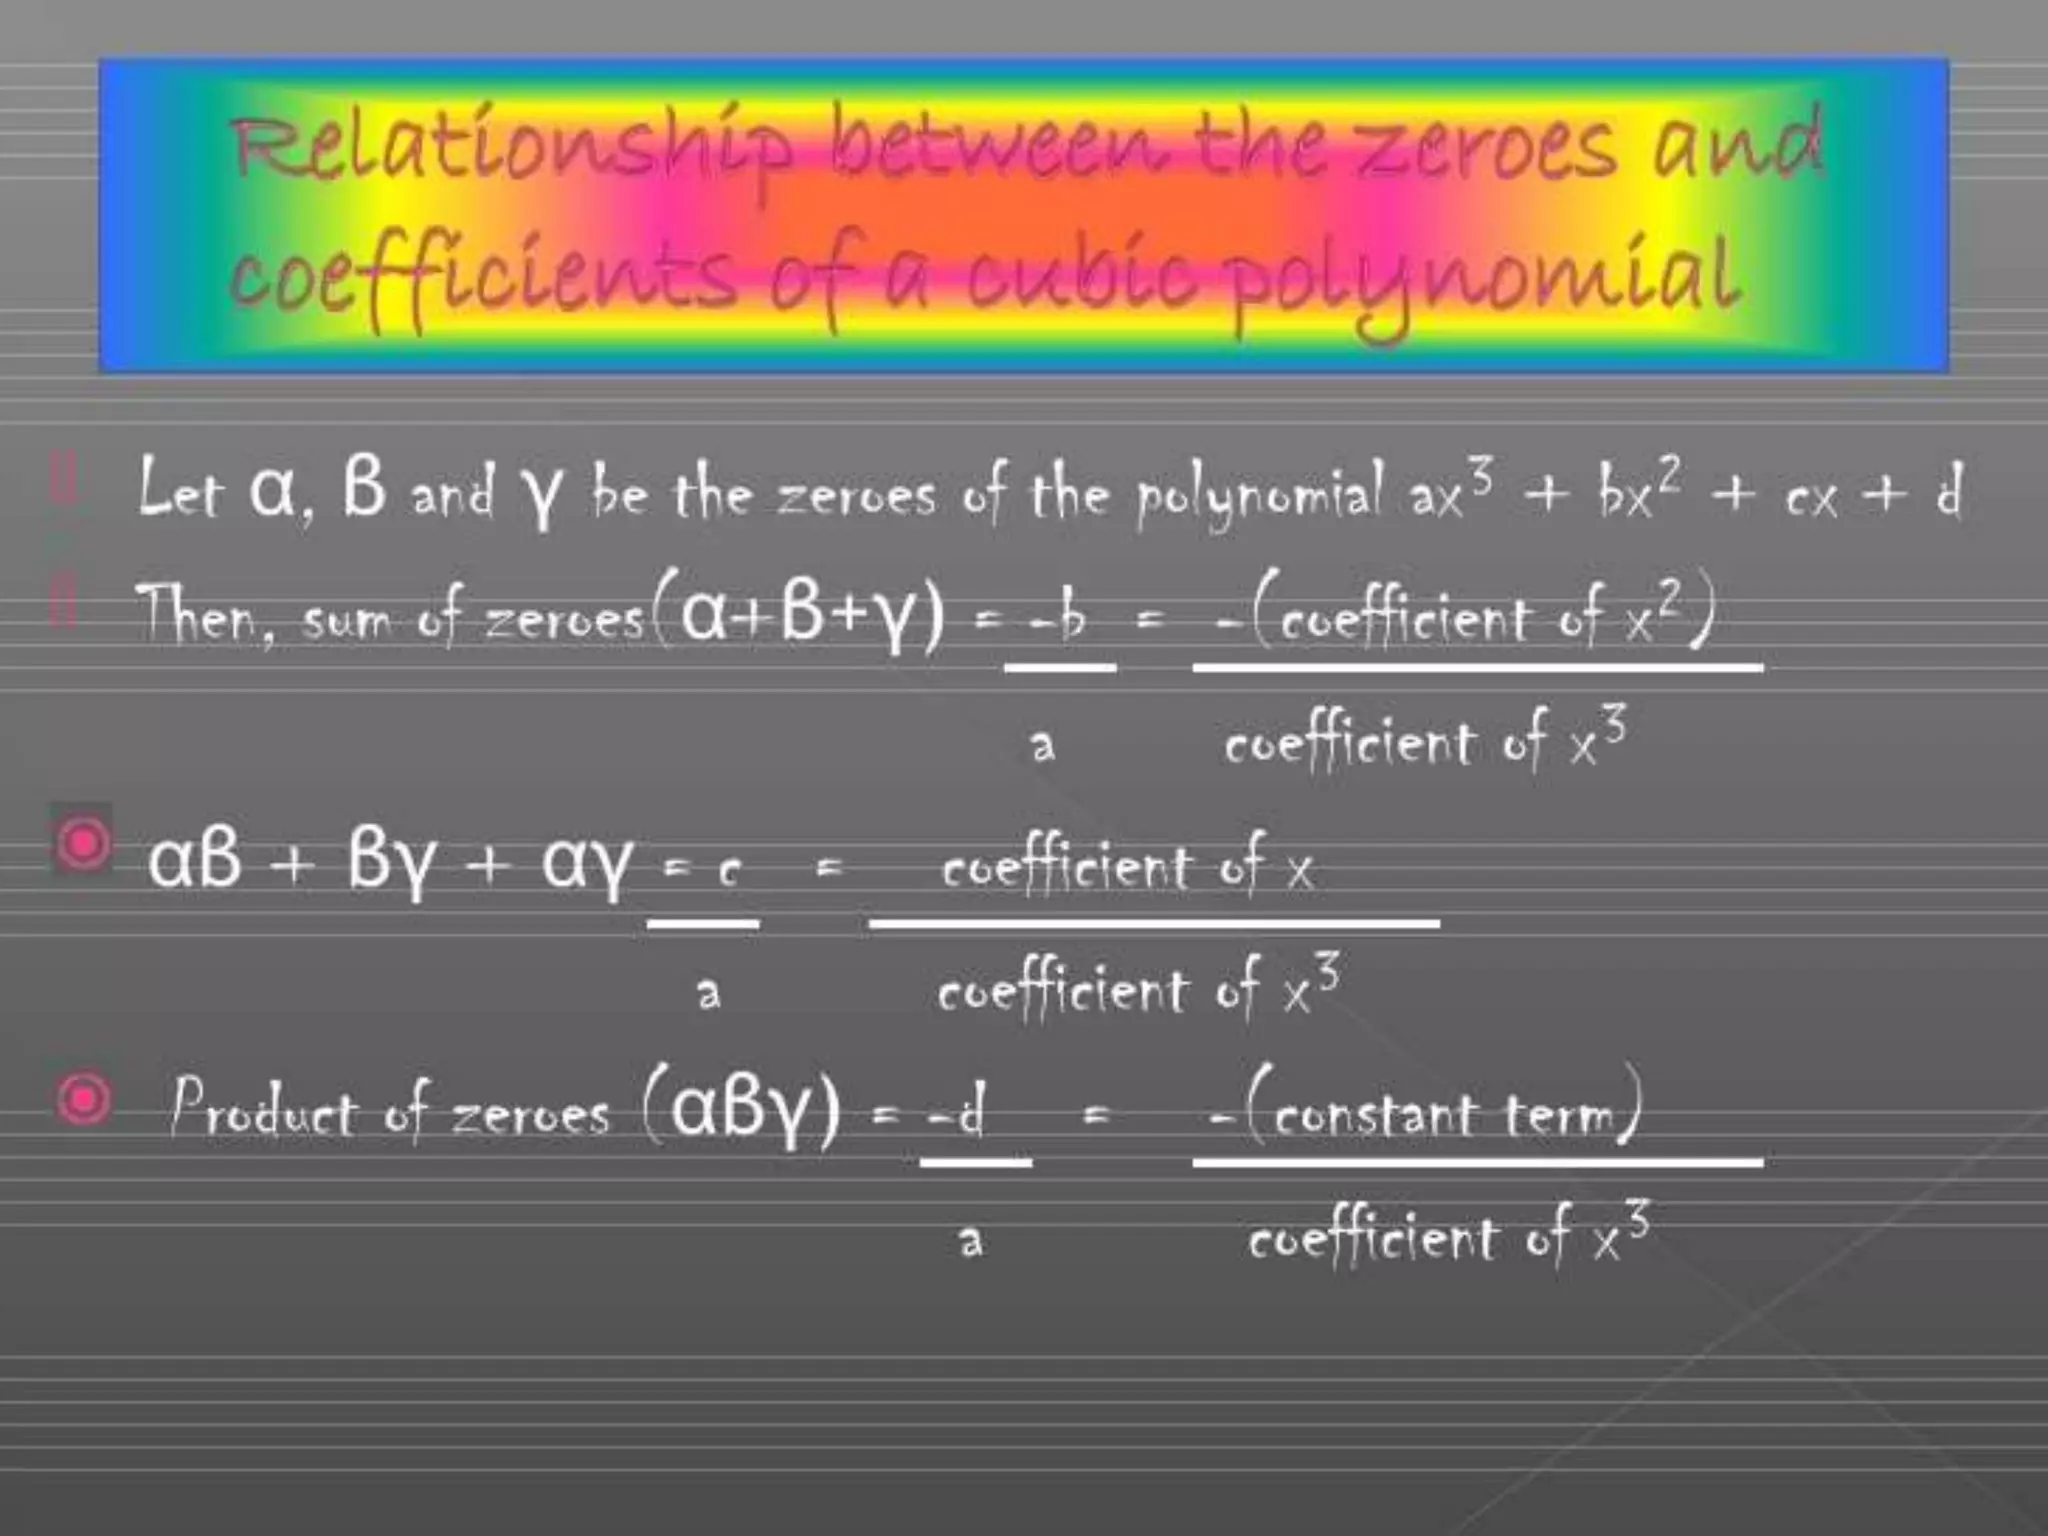 Relationship between the zeroes and
coefficients of a cubic polynomial
Let α, β and γ be the zeroes of the polynomial ax³ + bx² + cx + d
Then, sum of zeroes(α+β+γ) = -b = -(coefficient of x²)
a coefficient of x³
αβ + βγ + αγ = c = coefficient of x
a coefficient of x³
Product of zeroes (αβγ) = -d = -(constant term)
a coefficient of x³